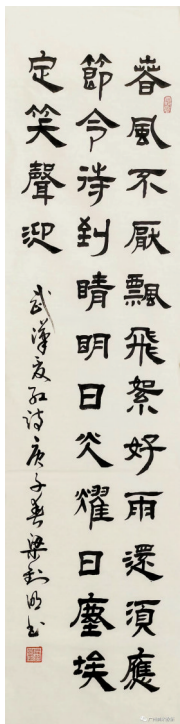 春風不厭飄飛絮好雨還須應
節令待到晴明日炎耀日塵埃
定笑聲迎
武漢诗庚子春梁明书